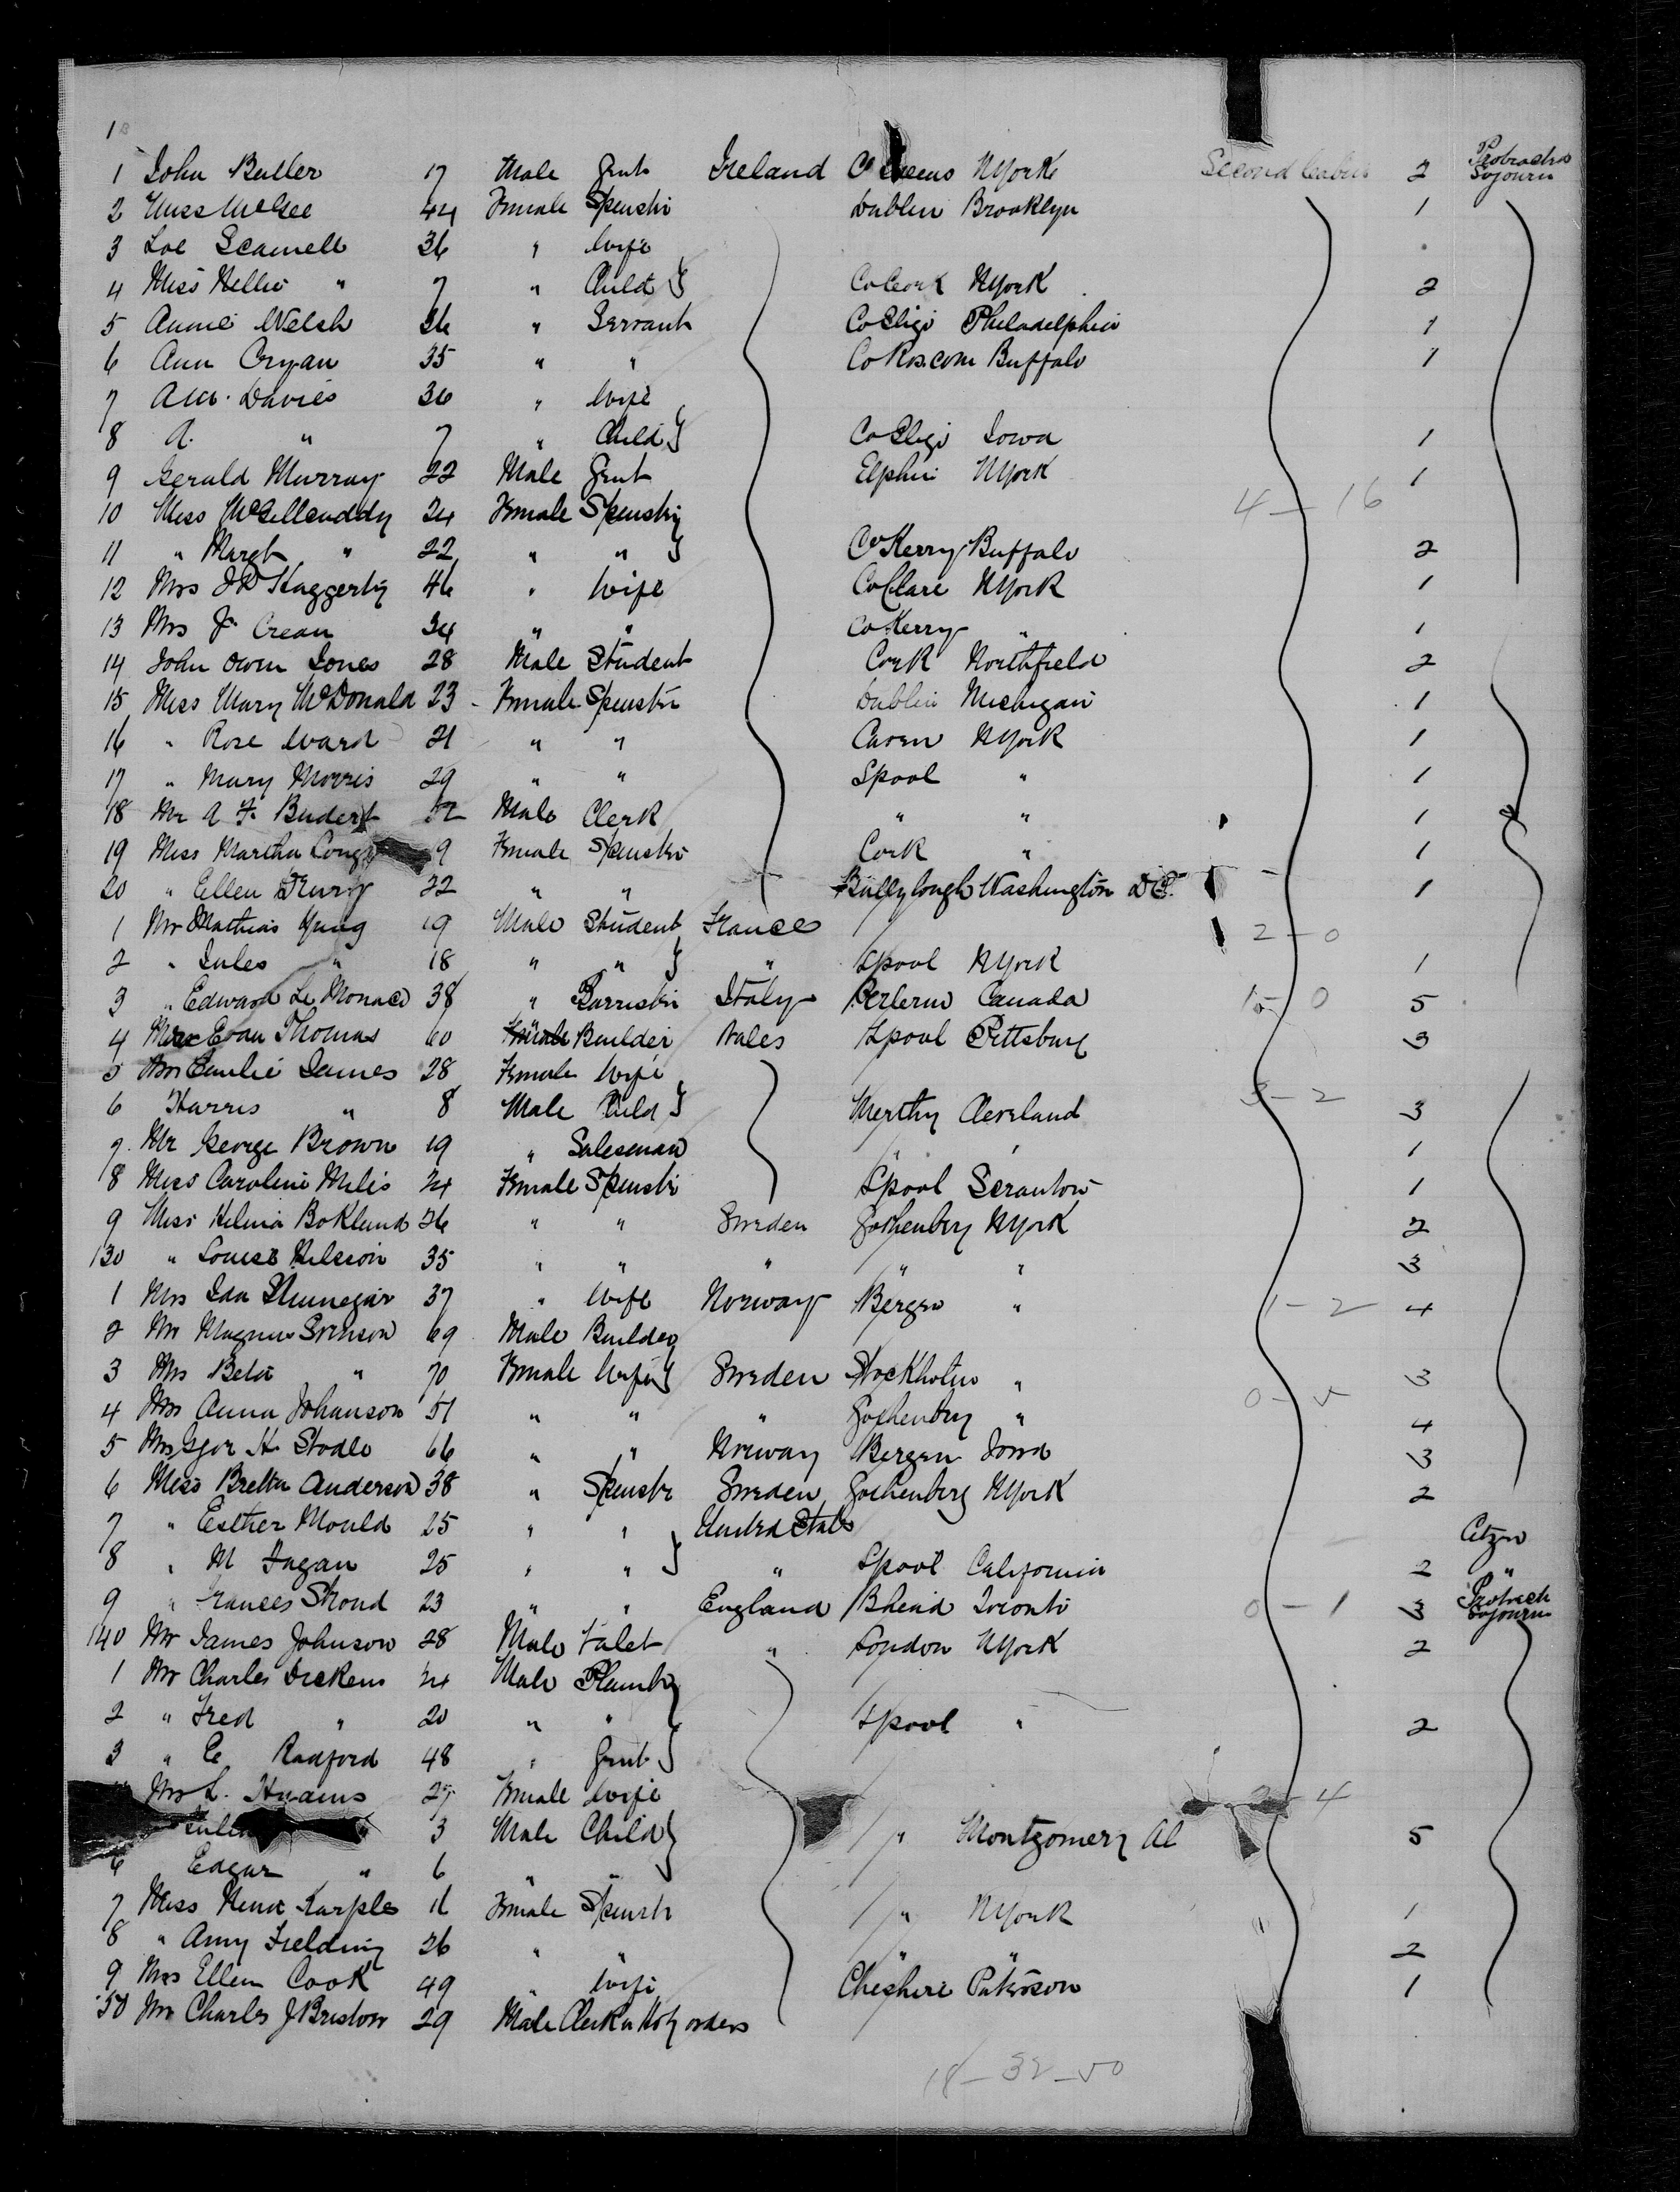 1
1 John Butler 17 Male Gent Ireland Co NYork Second Cabin 2 Protracted Sojourn
2 Miss McGee 44 Female Spinster Dublin Brooklyn 1
3 Loe Scannell 36 " Wife
4 Miss Nellie " 7 " Child } Co Cork NYork 2
5 Annie Welsh 26 " Servant Co Sligo Philadelphia 1
6 Ann Cryan 35 " " Co Roscom Buffalo 1
7 Davies 36 " Wife
8 A. " 7 " Child } Co Sligo Iowa 1
9 Gerald Murray 22 Male Gent Elphin NYork 1
10 Miss McGillcuddy 24 Female Spinster 4 - 16
11 " Margt " 22 " " } Co Kerry Buffalo 2
12 Mrs J D Haggerty 46 " Wife Co Clare NYork 1
13 Mrs J. Crean 34 " " Co Kerry " 1
14 John Owen Jones 28 Male Student Cork Northfield 2
15 Miss Mary McDonald 23 - Female Spinster Dublin Michigan 1
16 " Rose Ward 21 " " Caven NYork 1
17 " Mary Morris 29 " " Lpool " 1
18 Mr A F. Budert 32 Male Clerk " " 1
19 Miss Martha 9 Female Spinster Cork " 1
20 " Ellen 22 " " Washington DC. 1
1 Mr Mathias Yung 19 Male Student France 2 - 0
2 " Jules " 18 " " } " Lpool NYork 1
3 " Edward Le Monaco 38 " Barrister Italy Canada 0 5
4 Evan Thomas 60 Builder Wales Lpool Pittsburg 3
5 Mrs Emilie James 28 Female Wife
6 Harris " 8 Male Child } Merthy Cleveland 3 - 2 3
7 Mr George Brown 19 " Salesman " 1
8 Miss Caroline Miles 24 Female Spinster Lpool Scranton 1
9 Miss Helma Boklund 26 " " Sweden Gothenberg NYork 2
130 " Louise Nilsson 35 " " " " " 3
1 Mrs Ida 37 " Wife Norway Bergen " 1 - 2 4
2 Mr Magnus Svenson 69 Male Builder
3 Mrs Beta " 70 Female Wife } Sweden Stockholm " 3
4 Mrs Anna Johanson 51 " " " Gothenberg " 0 - 5 4
5 Mrs H. Stodle 66 " " Norway Bergen Iowa 3
6 Miss Bretta Anderson 38 " Spinster Sweden Gothenberg NYork 2
7 " Esther Mould 25 " " United States Citzn
8 " M Fagan 25 " " } " Lpool California 2 "
9 " Frances Stroud 23 " " England Bhead Toronto 0 - 1 3 Protrach Sojourn
140 Mr James Johnson 28 Male Valet " London NYork 2
1 Mr Charles Dickens 24 Male Plumber
2 " Fred " 20 " " } Lpool " 2
3 " E Radford 48 " Gent }
Mrs L. 27 Female Wife 2 - 4
3 Male Child } " Montgomery Al 5
6 Edgar " 6 " "
7 Miss Karples 16 Female Spinster " NYork 1
8 " Amy Fielding 26 " " " " 2
9 Mrs Ellen Cook 49 " Wife Cheshire Paterson 1
50 Mr Charles J Bristow 29 Male Clerk in Holy orders
18 - 32 - 50